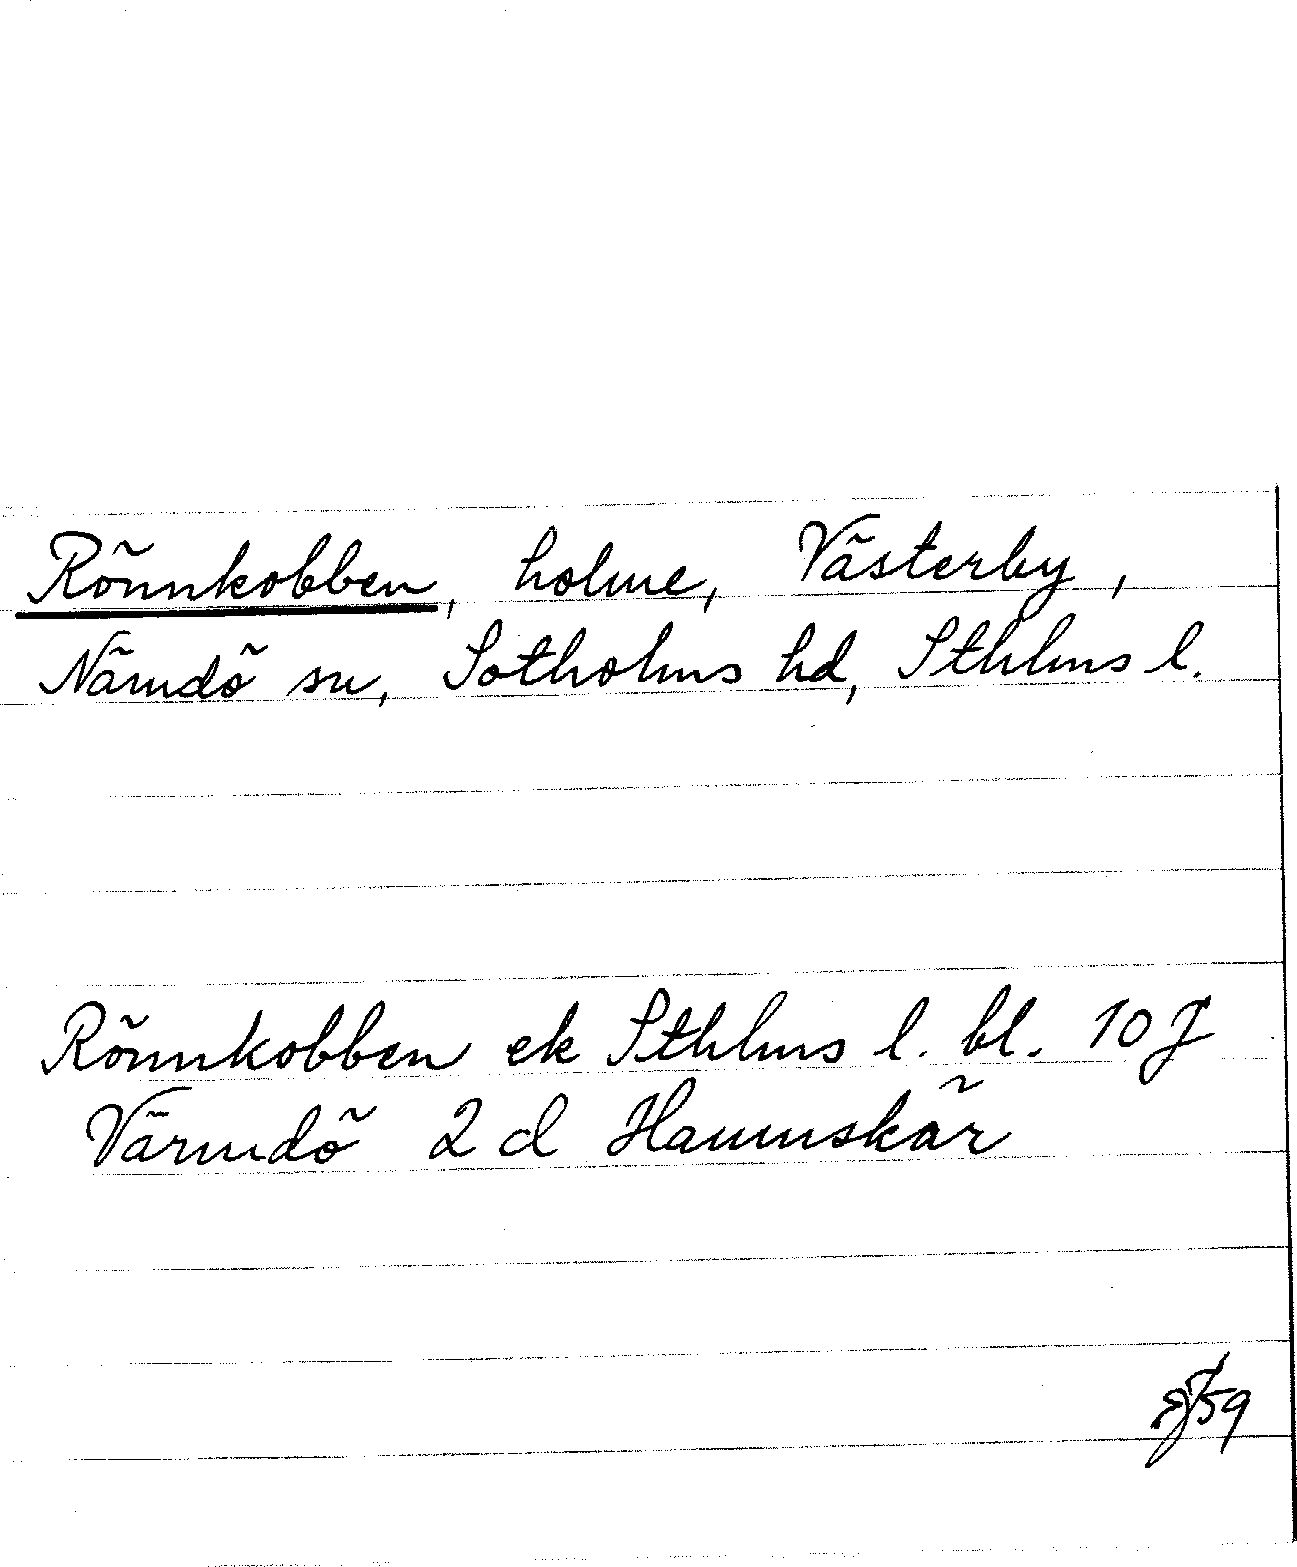 Rönnkobben, holme, Västerby,
Nämdö sn, Sotholms hd, Sthlms l.
Rönnkobben ek Sthlms l. bl. 10 J
Värmdö 2 d Hamnskär
59